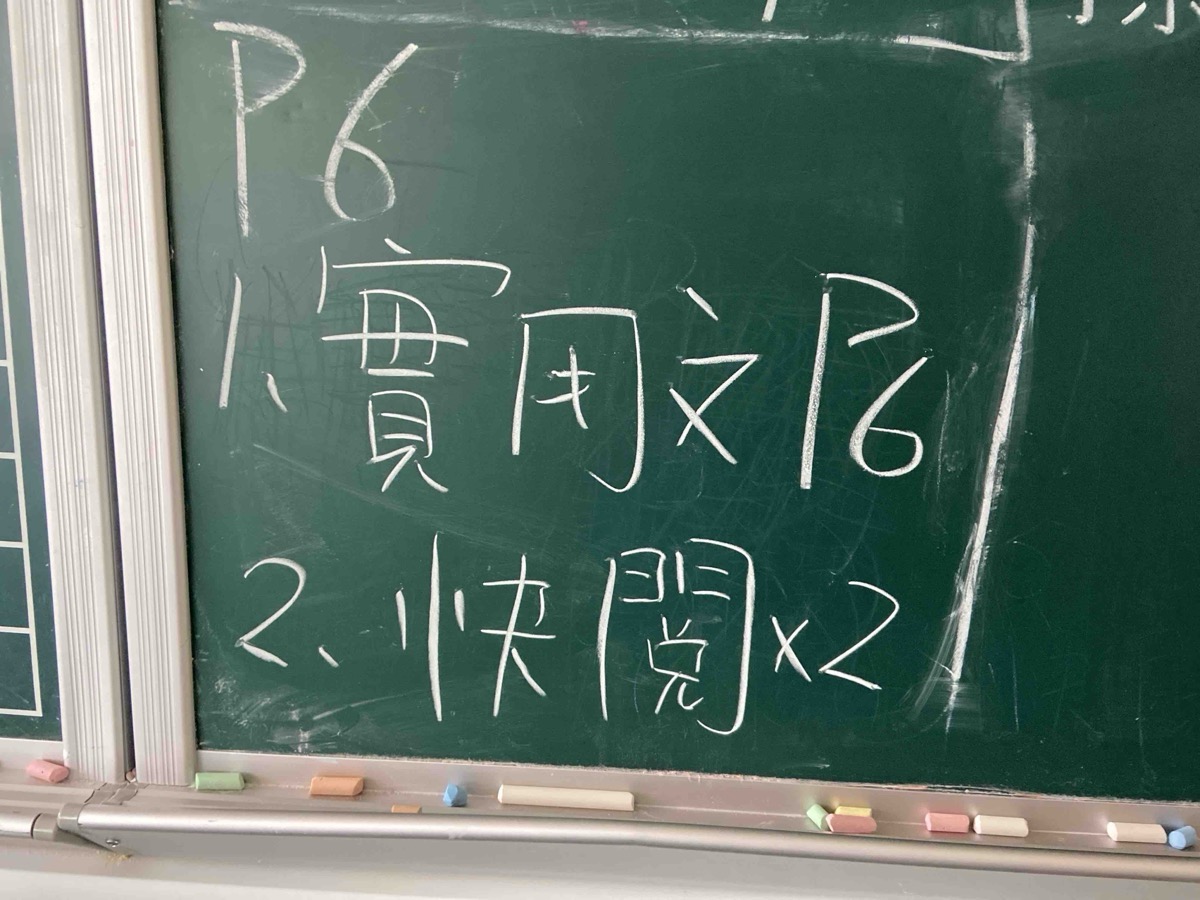 P6
1、實用文P6
2、快閱x2